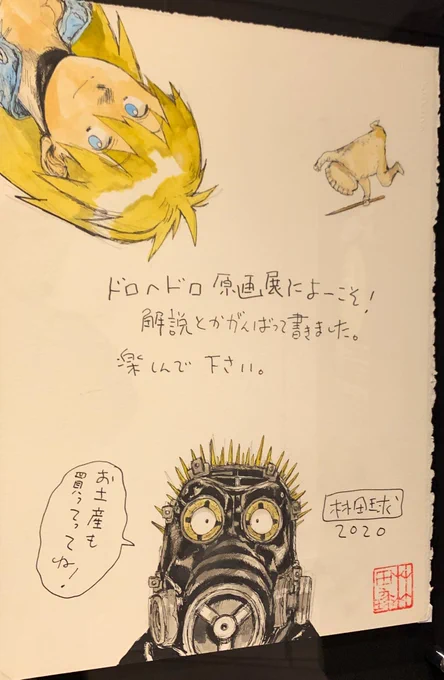 ドロヘドロ 原画展によーこそ！
解説とかがんばって書きました。
楽しんで 下さい。
お土産も
買ってってね！
林田球
2020